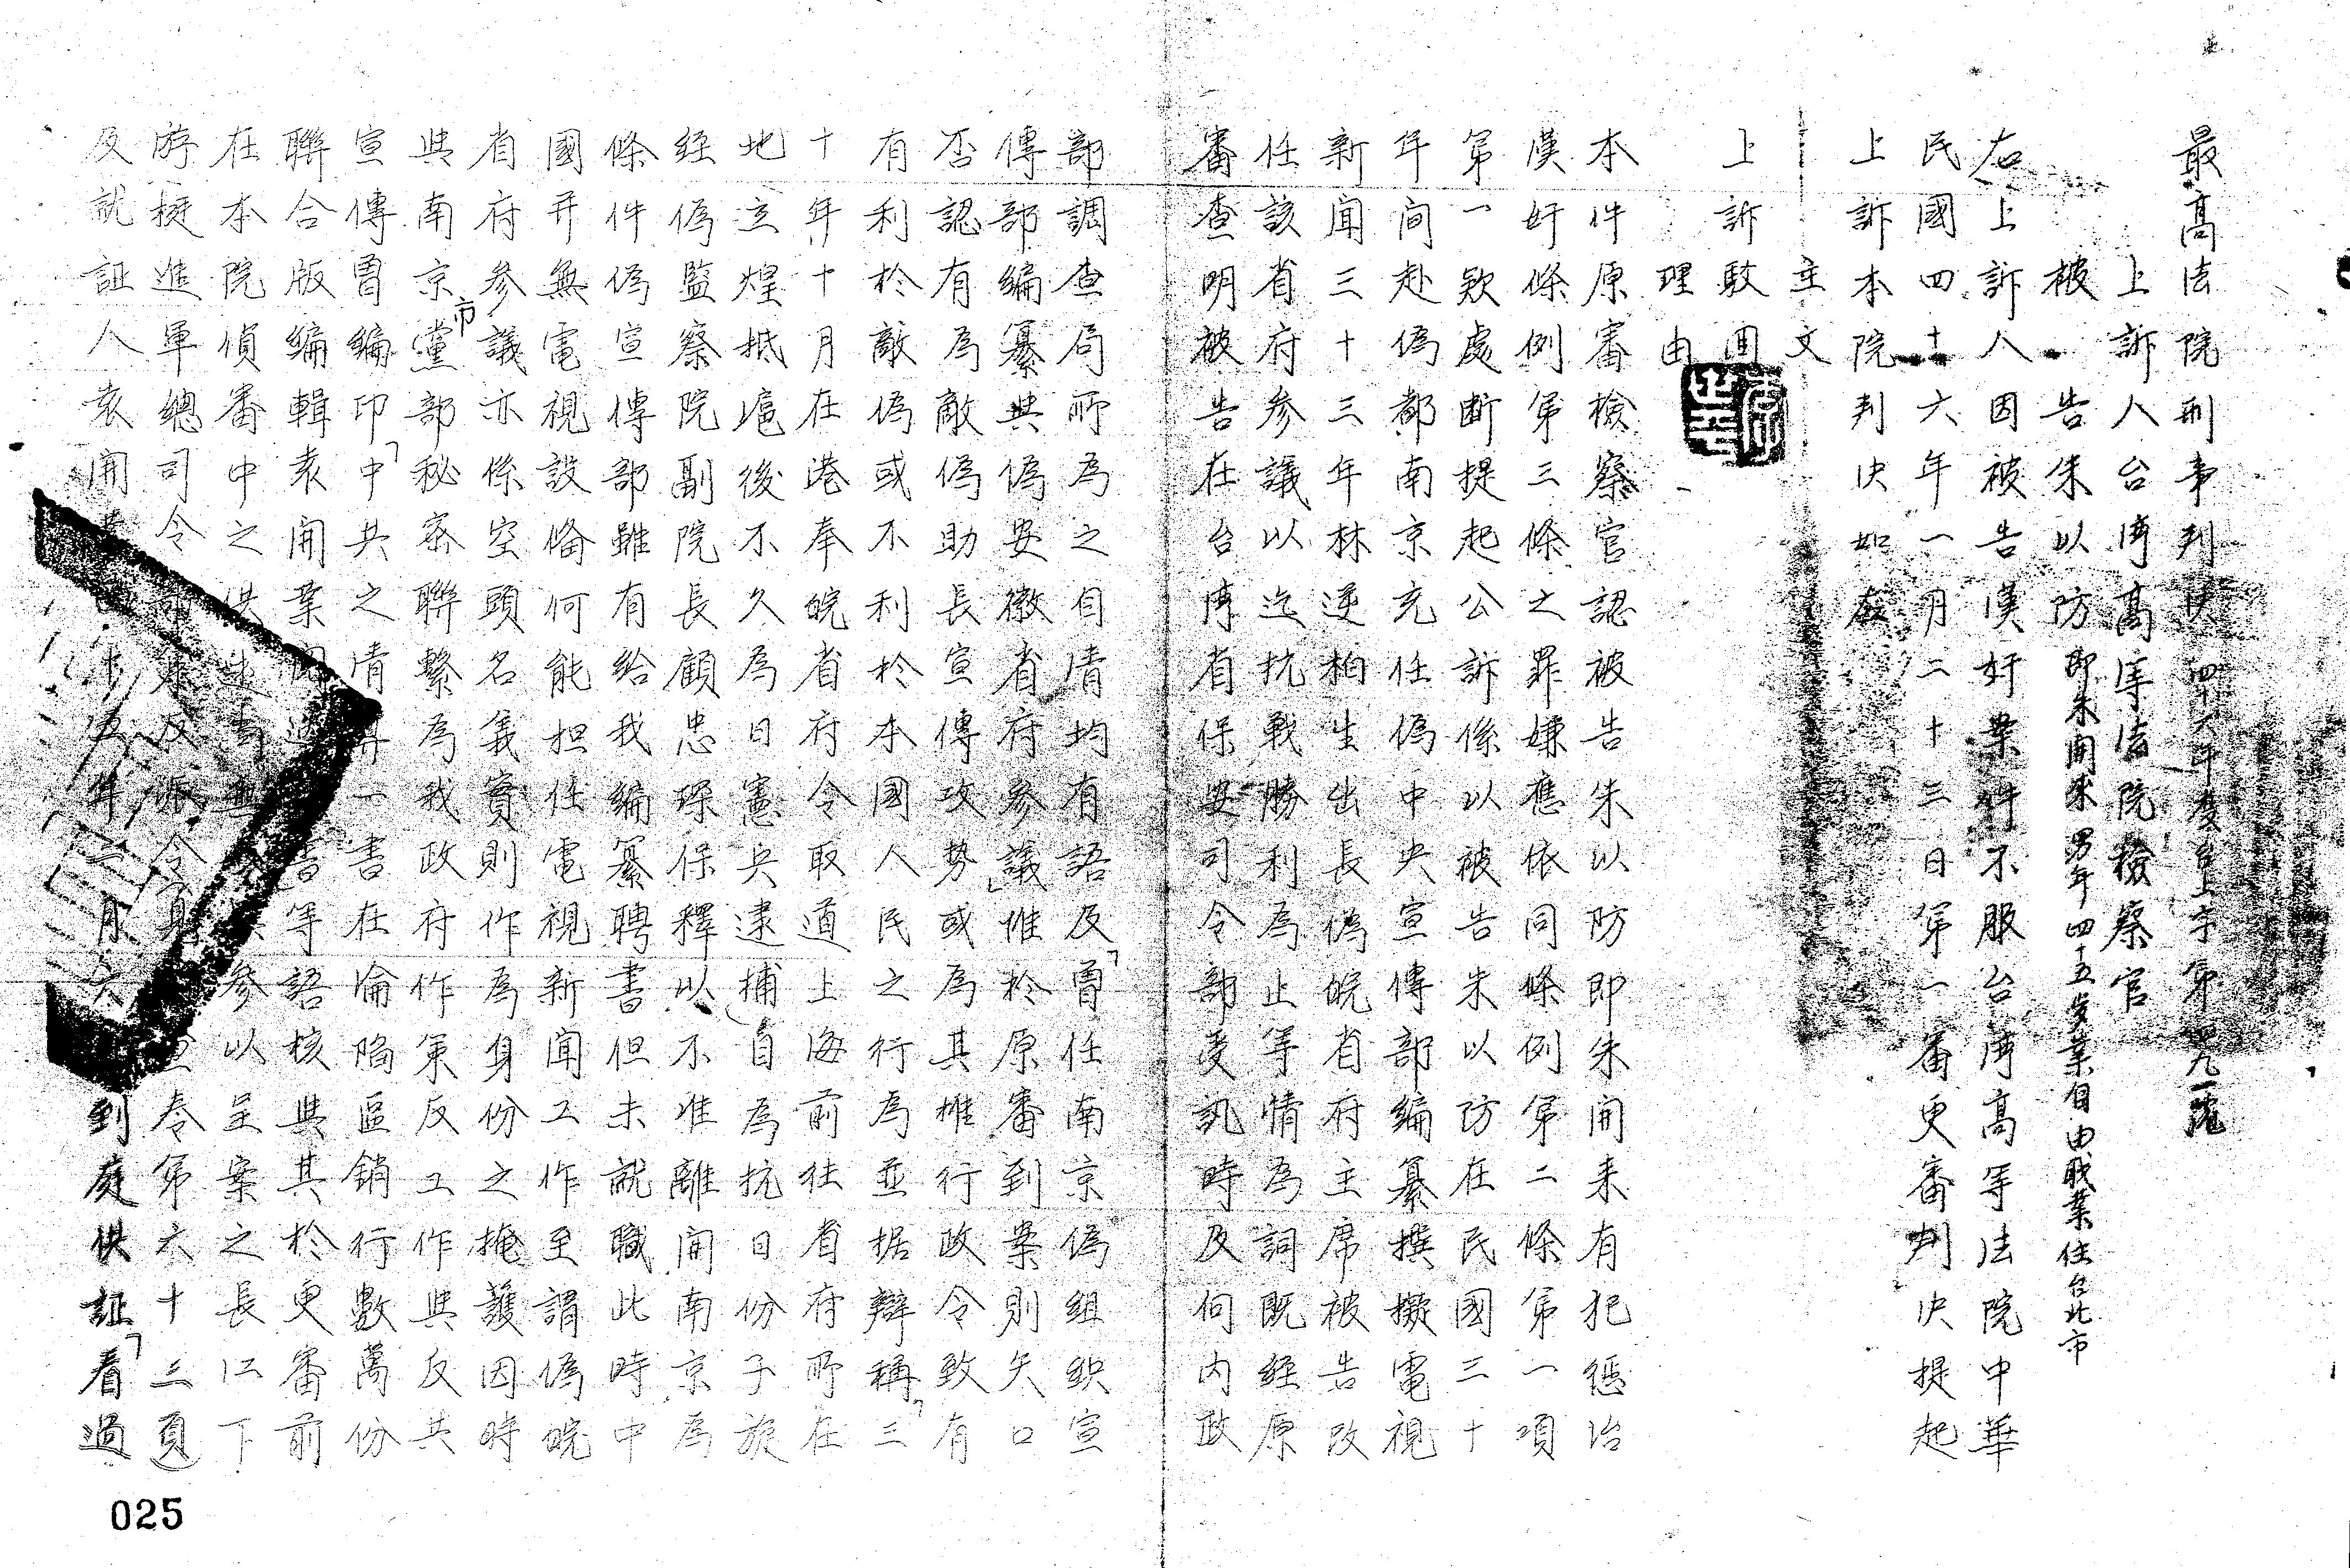 最高法院刑事判決 四十六年度台上字第 九一號
上訴人台灣高等法院檢察官
被告朱以防 即朱開來 男年四十五歲業自由職業住台北市
右上訴人因被告漢奸案件不服台灣高等法院中華
民國四十六年一月二十三日第一審更審判決提起
上訴本院判決如左
主文
上訴駁回
理由
本件原審檢察官認被告朱以防即朱開來有犯懲治
漢奸條例第三條之罪嫌應依同條例第二條第一項
第一款處斷提起公訴係以被告朱以防在民國三十
年间赴偽都南京充任偽中央宣傳部編纂撰擬電視
新聞三十三年林逆柏生出長偽皖省府主席被告改
任該省府參議以迄抗戰勝利為止等情為詞既經原
審查明被告在台灣省保安司令部受訊時及向內政
部調查局所為之自清均有語及「曾任南京偽組織宣
傳部編纂與偽安徽省府參議」惟於原審到案則矢口
否認有為敵偽助長宣傳攻勢或為其推行政令致有
有利於敵偽或不利於本國人民之行為並据辯稱「三
十年十月在港奉皖省府令取道上海前往省府所在
地立煌抵滬後不久為日憲兵逮捕自為抗日份子旋
經偽監察院副院長顧忠琛保釋以不准離開南京為
條件偽宣傳部雖有給我編纂聘書但未就職此時中
國并無電視設備何能担任電視新聞工作至謂偽皖
省府參議亦係空頭名義實則作為身份之掩護因時
與南京市黨部秘密聯繫為我政府作策反工作與反共
宣傳曾編印「中共之清算一書在淪陷區銷行數萬份
聯合版編輯袁開業 等語核與其於更審前
在本院偵審中之供述 參以呈案之長江下
游挺進軍總司令 令第六十三頁)
及就証人袁開業 五年二月六 到庭供証「看過
025